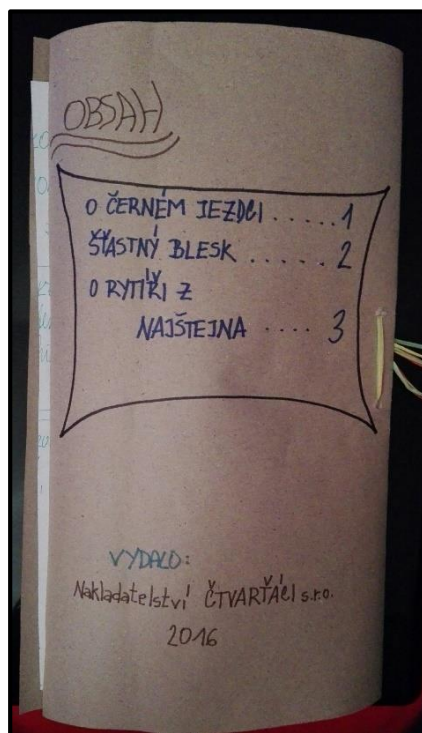 OBSAH
O ČERNÉM JEZDCI ..... 1
ŠŤASTNÝ BLESK ..... 2
O RYTÍŘI Z
NAJŠTEJNA .... 3
VYDALO:
Nakladatelství ČTVARŤÁCI s.r.o.
2016